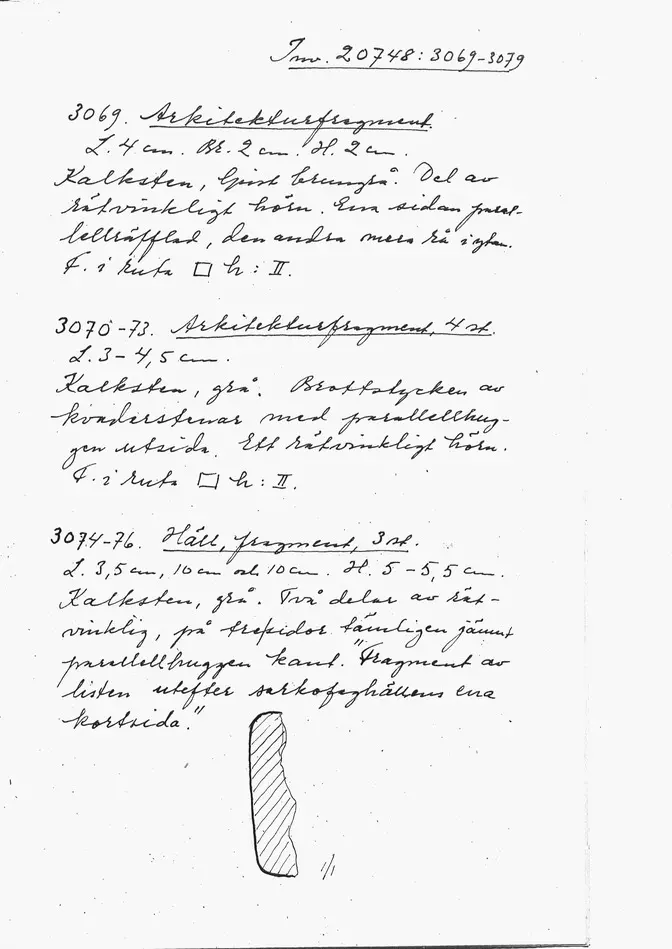 Inv. 20748:3069-3079
3069. Arkitekturfragment.
L. 4 cm. Br. 2 cm. H. 2 cm.
Kalksten, ljust brungrå. Del av
rätvinkligt hörn. Ena sidan paral-
lellräfflad, den andra mera rå i ytan.
F. i ruta □ h : II.
3070-73. Arkitekturfragment, 4 st.
L. 3-4,5 cm.
Kalksten, grå. Brottstycken av
kvaderstenar med parallellhug-
gen utsida. Ett rätvinkligt hörn.
F. i ruta □ h : II.
3074-76. Häll, fragment, 3 st.
L. 3,5 cm, 10 cm och 10 cm. H. 5-5,5 cm.
Kalksten, grå. Två delar av rät-
vinklig, på tre sidor tämligen jämnt
parallellhuggen kant. "Fragment av
listen utefter sarkofaghällens ena
kortsida."
1/1